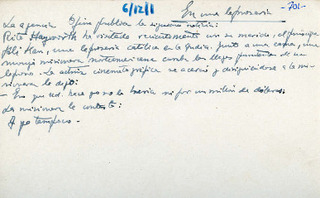 6/12/1
En una leprosería
-701-
La agencia Efe publica la siguiente noticia:
Rita Hayworth ha visitado recientemente con su marido, el príncipe
Alí Khan, una leprosería católica en la India. Junto a una capa, una
monja misionera norteamericana curaba las llagas de un
leproso. La actriz cinematográfica se acercó y dirigiéndose a la mi-
sionera le dijo:
- Eso que Ud. hace yo no lo haría ni por un millón de dólares.
La misionera le contestó:
- Yo tampoco.